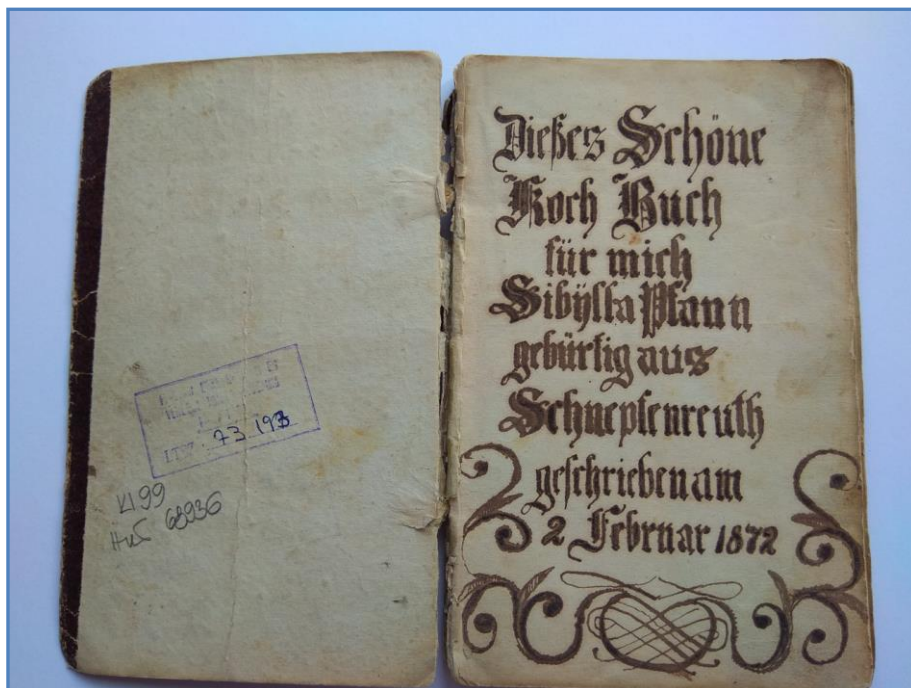 73 193
K199
68936
Dießes Schöne
Koch Buch
für mich
Sibÿlla Pfann
gebürtig aus
Schnepfenreuth
geschrieben am
2 Februar 1872